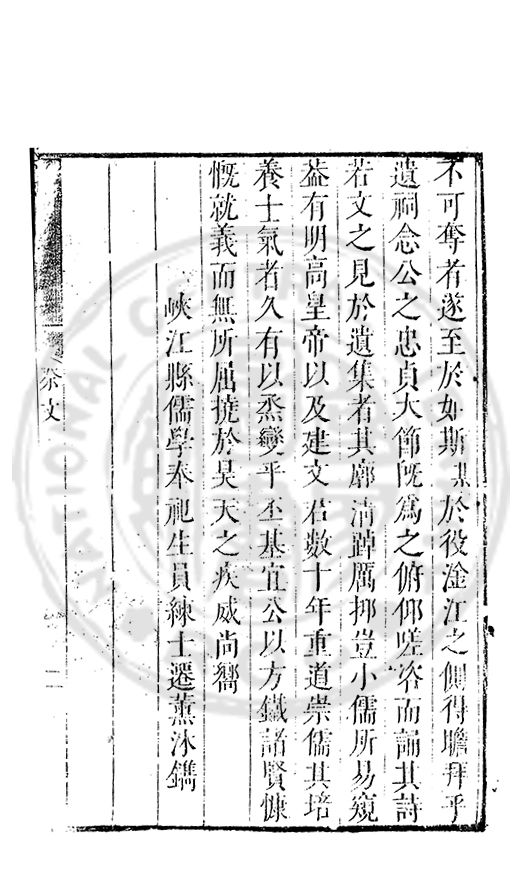 不可奪者遂至於如斯某於役淦江之側得瞻拜乎
遺祠念公之忠貞大節旣爲之俯仰嗟咨而誦其詩
若文之見於遺集者其廓清踔厲抑豈小儒所易窺
葢有明高皇帝以及建文君數十年重道崇儒其培
養士氣者久有以烝變乎丕基宜公以方鐵諸賢慷
慨就義而無所屈撓於昊天之疾威尚嚮
峽江縣儒學奉祀生員練士遷薰沐鐫
祭文
NATIONAL CENTRAL